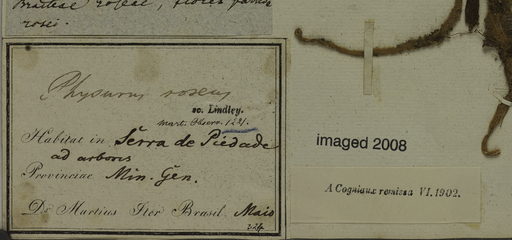 Bracteae roseae, flores pariter
rosei.
Physurus roseus
sc. Lindley.
mart. Observ. 1221.
Habitat in Sĕrra de Piedade
ad arbores
Provinciae Min. Gen.
Dr Martius Iter Brasil. Maio
imaged 2008
A Cogniaux remissa VI. 1902.